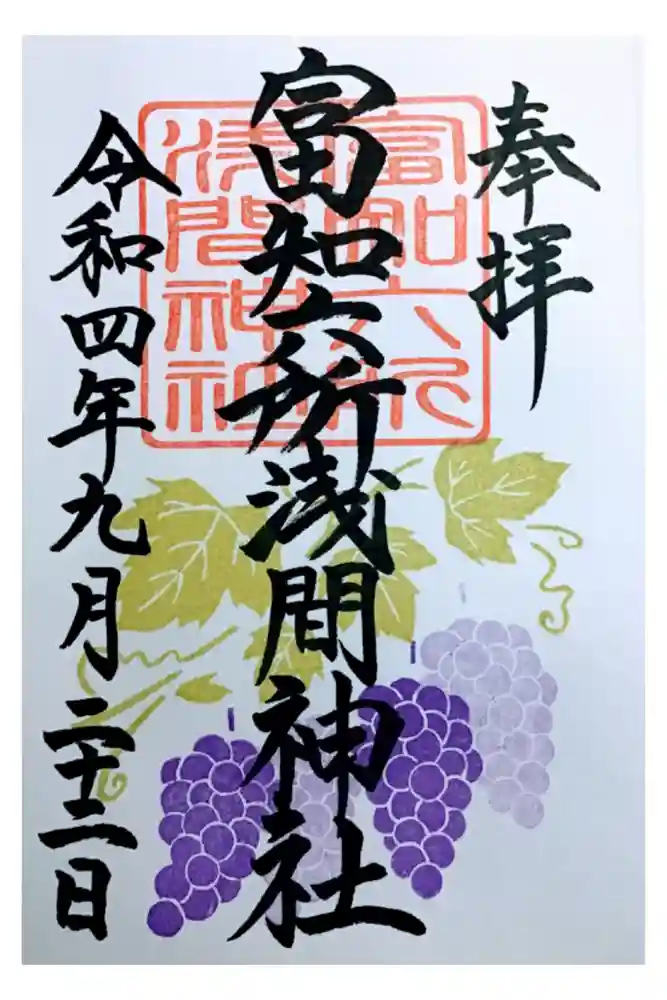 奉拝
富知六所浅間神社
富知六所
浅間神社
令和四年九月二十二日